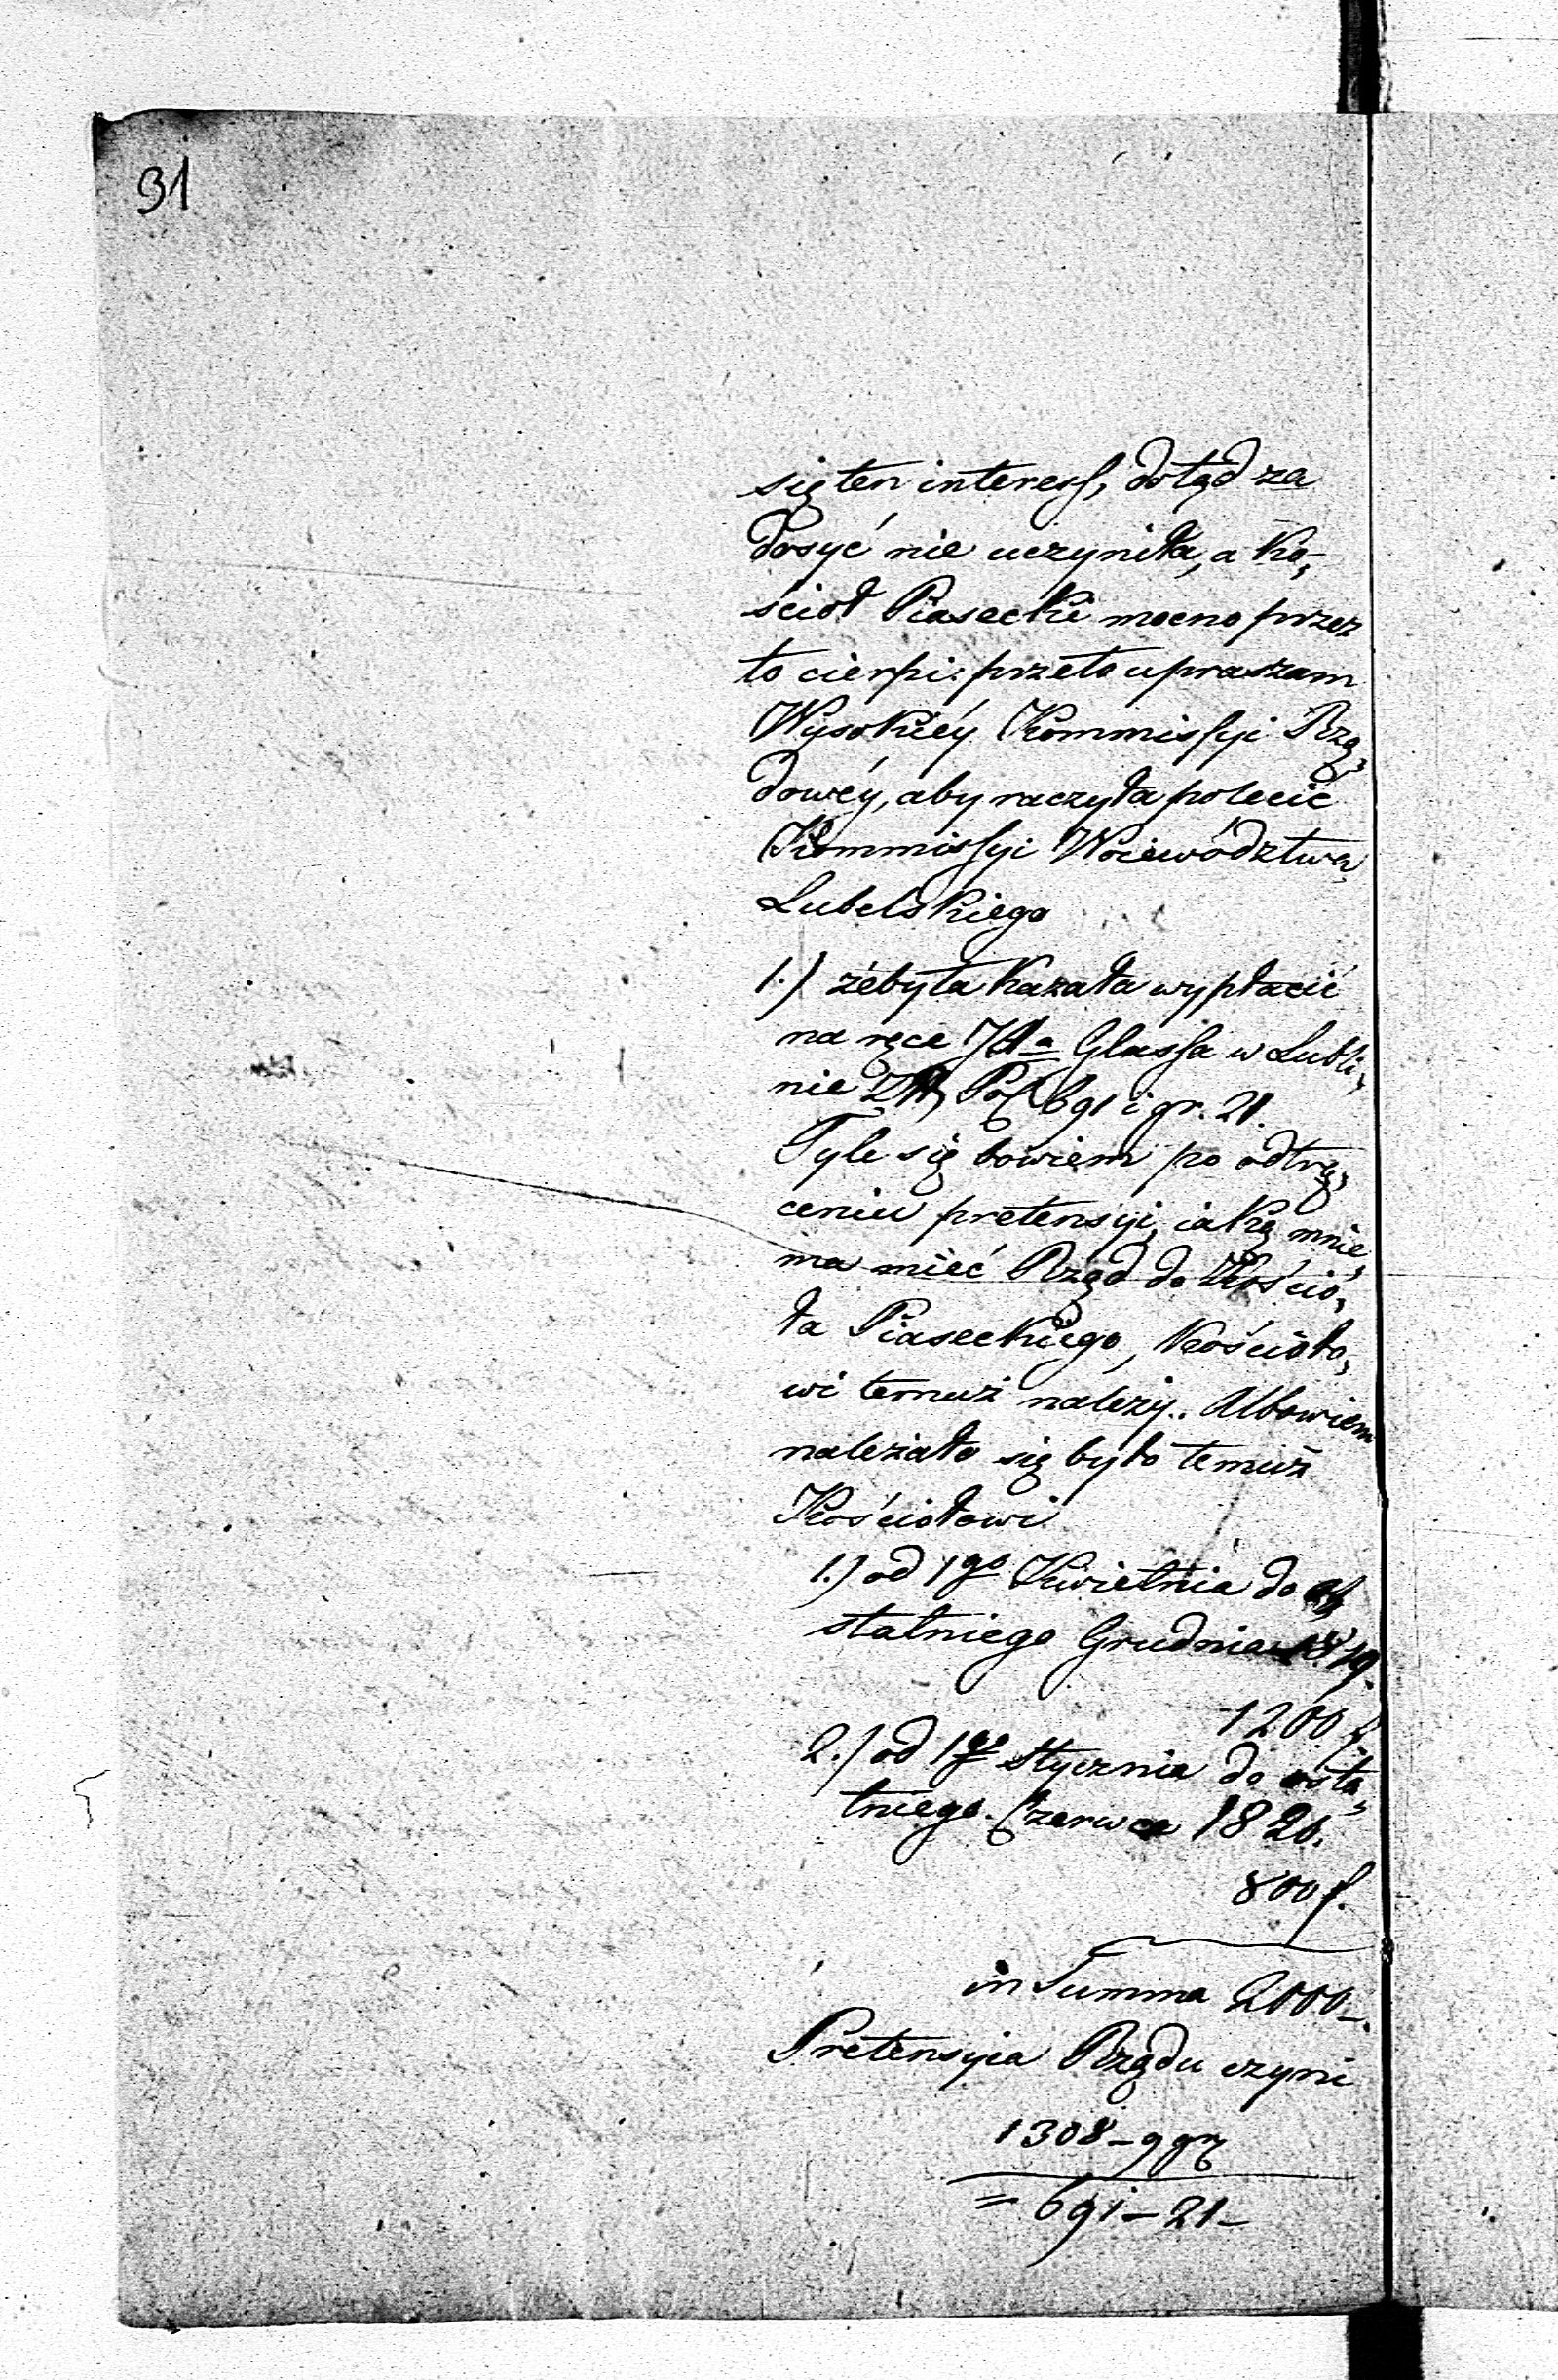 91
się ten interess, dotąd za
dosyć nie uczyniła, a Ko-
ścioł Piasecki mocno przez
to cierpi: przeto upraszam
Wysokiéy Kommissyi Rzą-
dowéy, aby raczyła polecić
Kommissyi Woiewództwa
Lubelskiego
1.) żeby ta kazała wypłacić
na ręce Glassa w Lubli-
nie Zł. Pol. 691 i gr. 21.
Tyle się bowiem po odtrą-
ceniu pretensyi, iaką mnie-
ma mieć Rząd do Kościo-
ła Piaseckiego, Kościoło-
wi temuż należy. Albowiem
należało się było temuż
Kościołowi
1.) od 1go Kwietnia do
statniego Grudnia 1819.
1200 f
2.) od 1go Stycznia do osta-
tniego Czerwca 1820.
800 f.
in Summa 2000-.
Pretensyia Rządu czyni
1308 - 9 gr
= 691 - 21 -